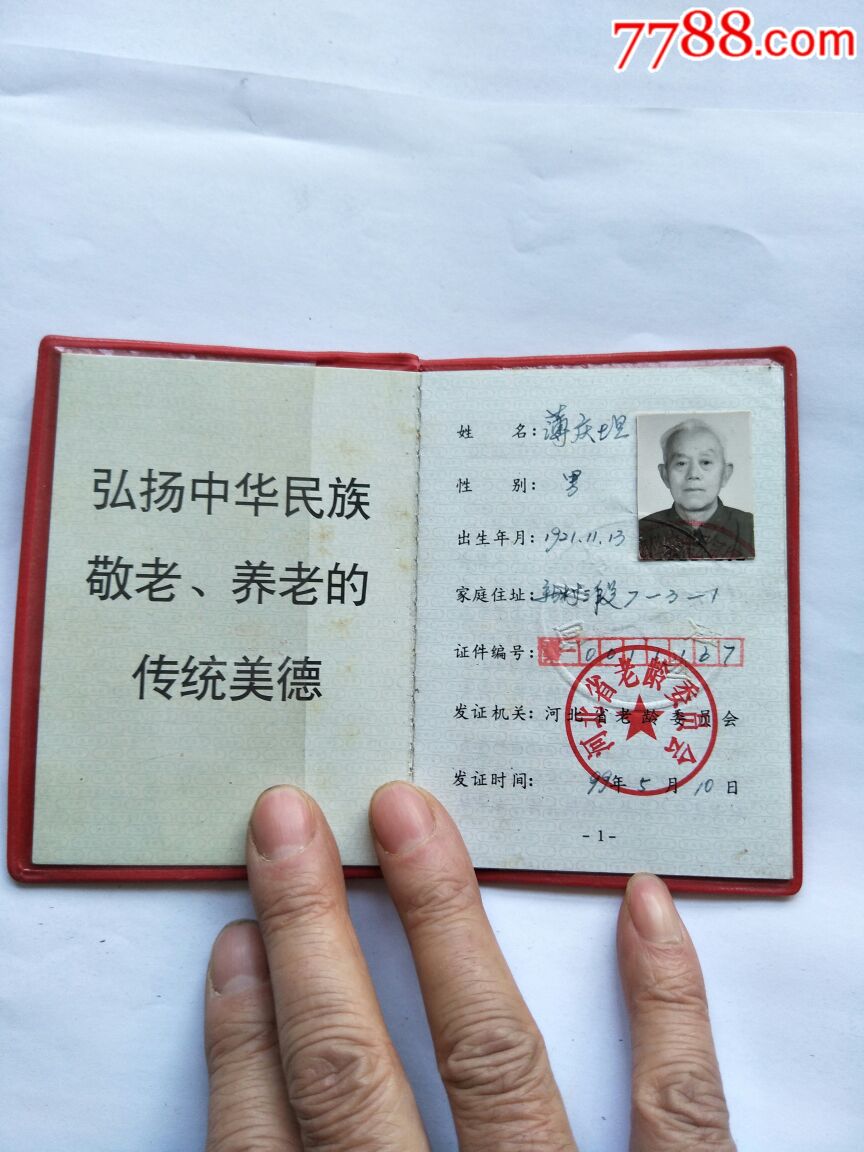 7788.com
弘扬中华民族
敬老、养老的
传统美德
姓 名: 薄庆坦
性 别: 男
出生年月: 1921.11.13
家庭住址: 7-3-1
证件编号: 167
发证机关: 河北省老龄委员会
河北省老龄委员会
发证时间: 99年 5月 10日
-1-